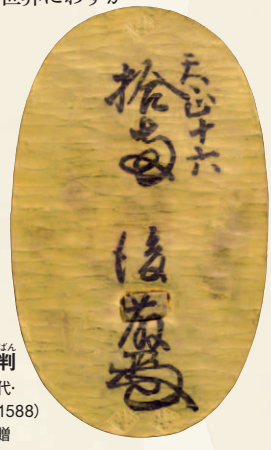 世界にわずか
天正十六
拾両 後藤
ばん
判
代・
1588)
贈